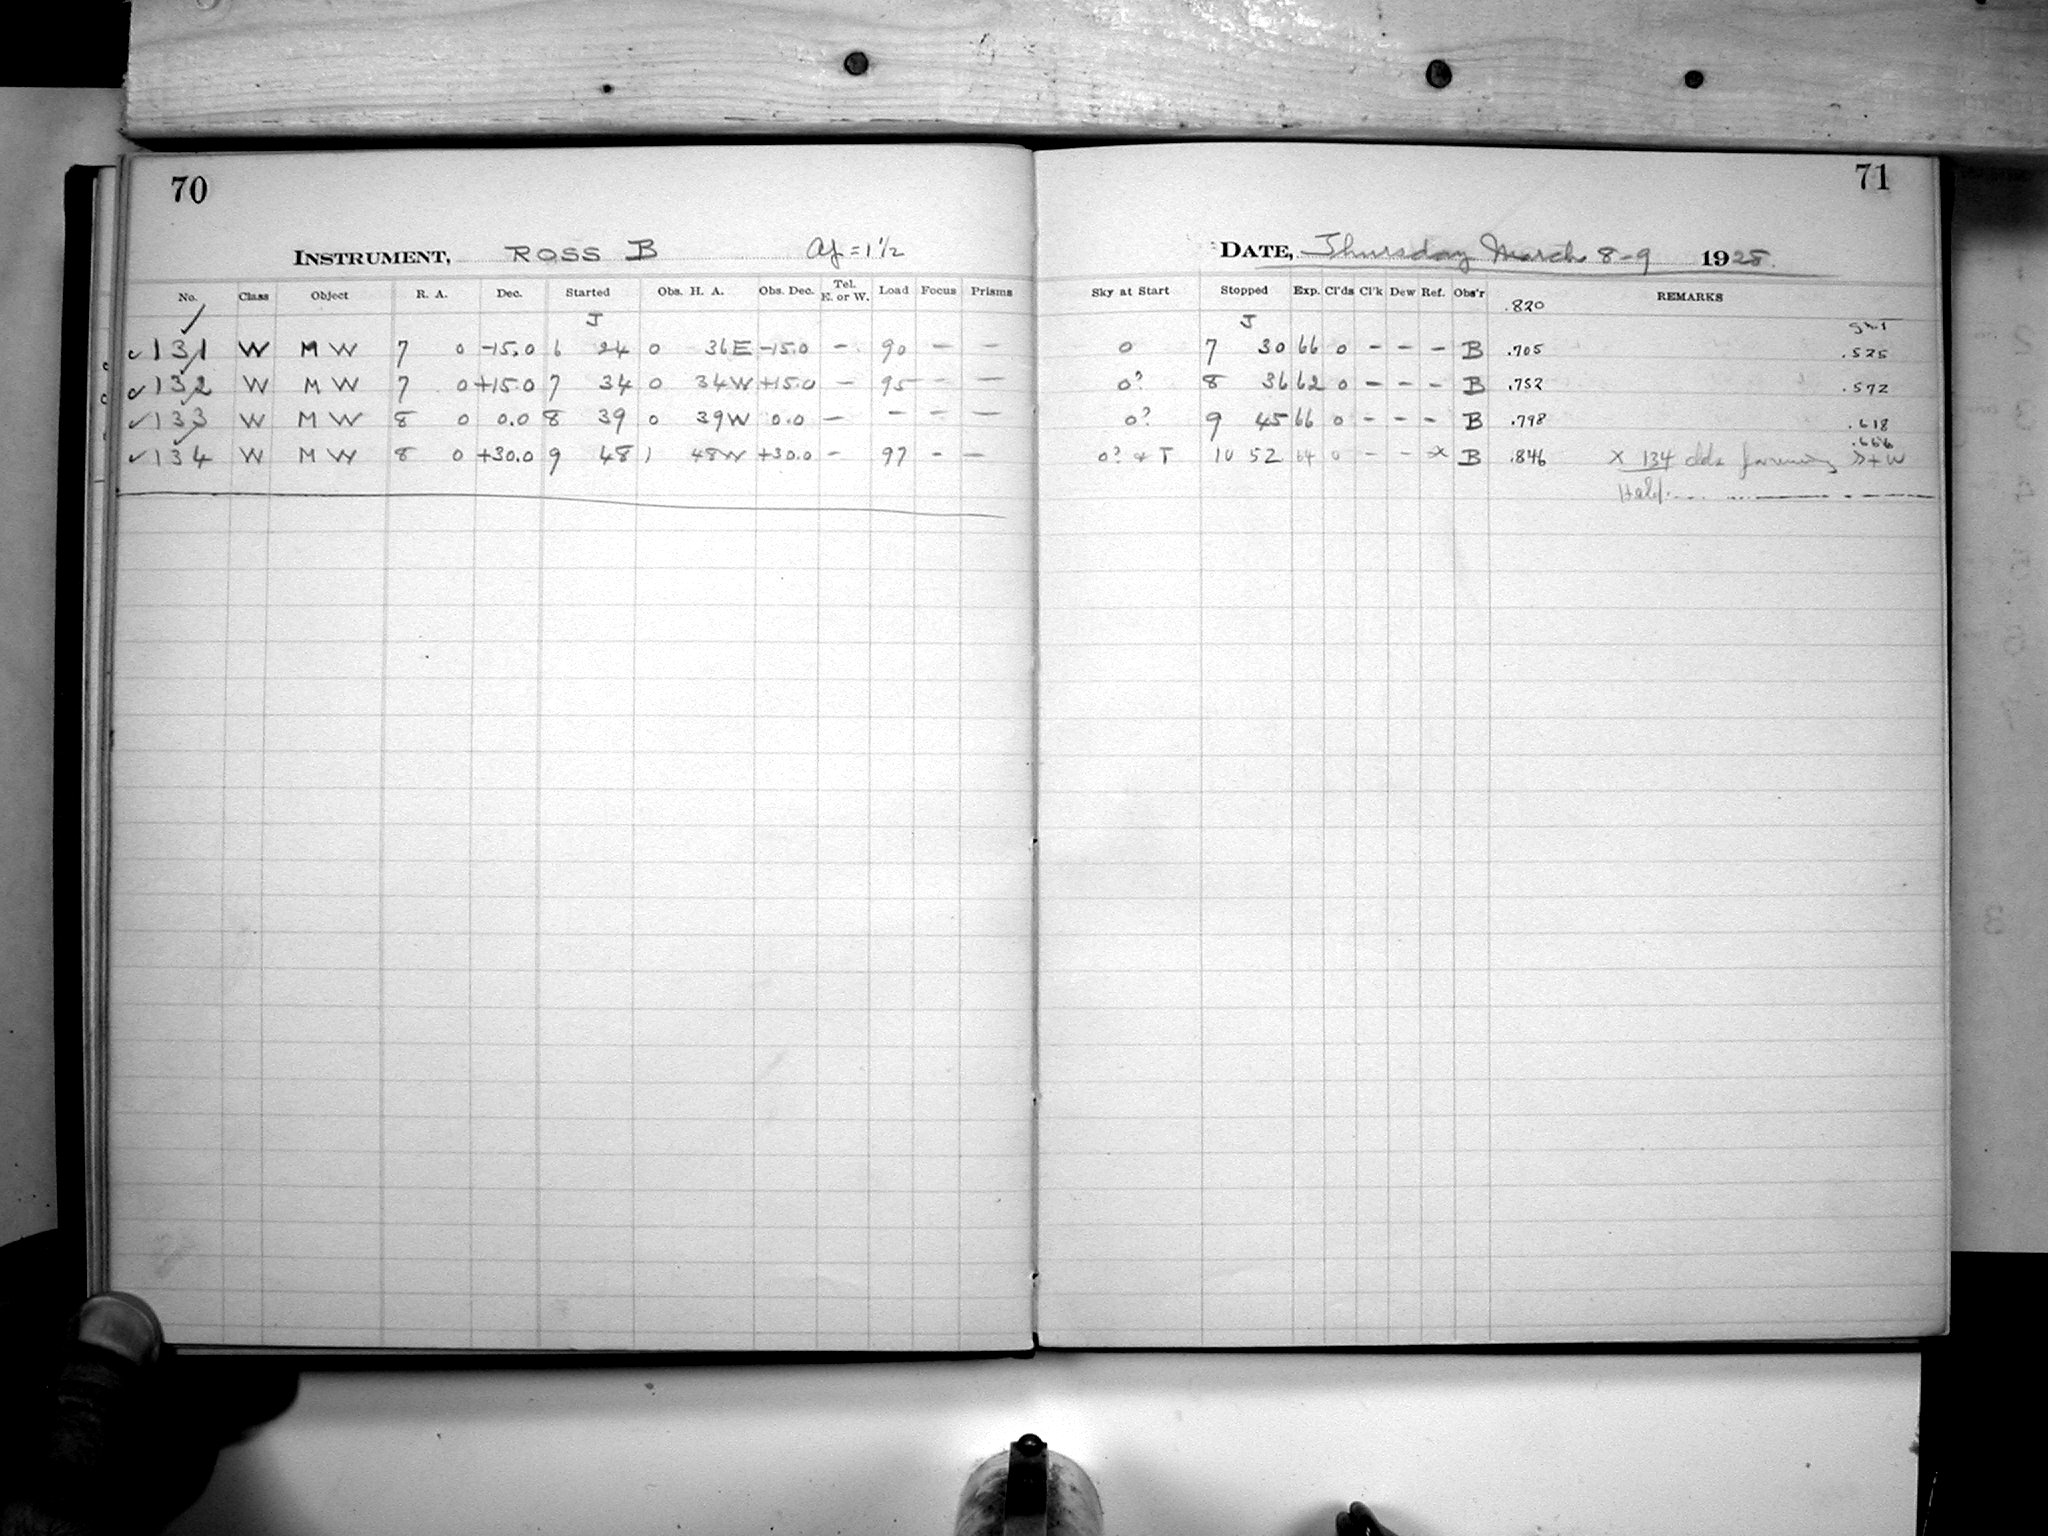 70
INSTRUMENT, ROSS B Ap = 1½
No. Class Object R. A. Dec. Started Obs. H. A. Obs. Dec. Tel. E. or W. Load Focus Prisms
J
✓131 W M W 7 0 -15.0 6 24 0 36E -15.0 - 90 - -
✓132 W M W 7 0 +15.0 7 34 0 34W +15.0 - 95 - -
✓133 W M W 8 0 0.0 8 39 0 39W 0.0 - - - -
✓134 W M W 8 0 +30.0 9 48 1 48W +30.0 - 97 - -
71
DATE, Thursday March 8-9 1928
Sky at Start Stopped Exp. Cl'ds Cl'k Dew Ref. Obs'r .820 REMARKS
J
0 7 30 66 0 - - - B .705 .525
0? 8 36 62 0 - - - B .752 .572
0? 9 45 66 0 - - - B .798 .618
.666
0? & T 10 52 64 0 - - x B .846 X 134 clds forming S+W
Half